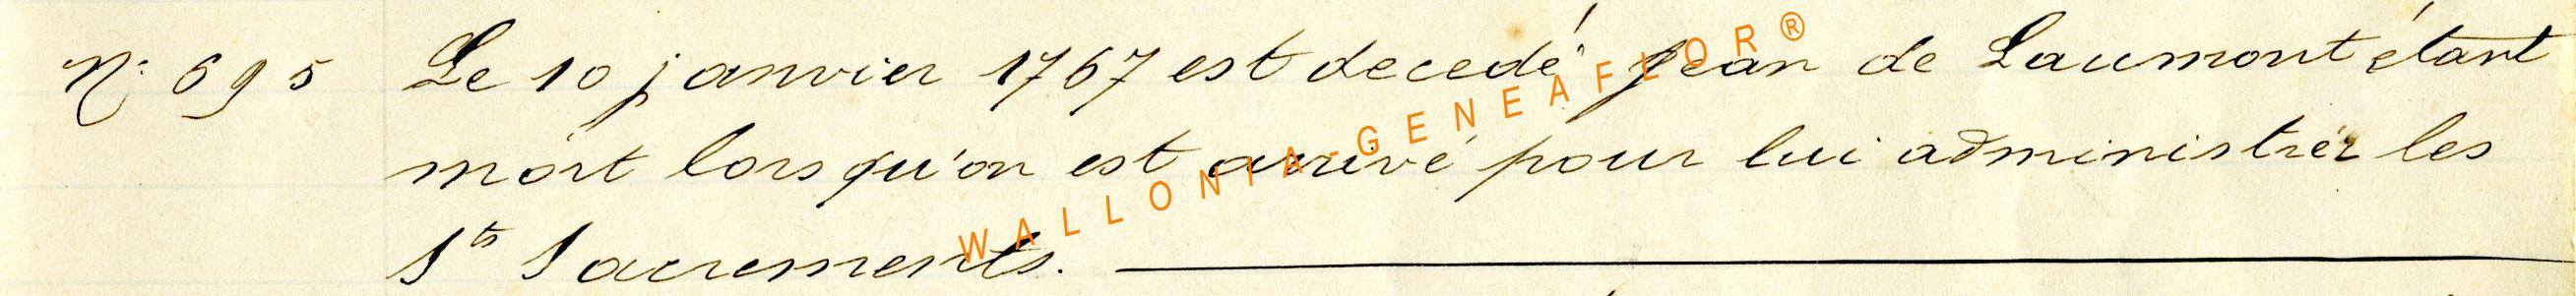 N: 695 Le 10 janvier 1767 est decedé Jean de Laumont étant
mort lorsqu'on est arrivé pour lui administrér les
Sts Sacrements.
WALLONIA-GENEAFLOR®